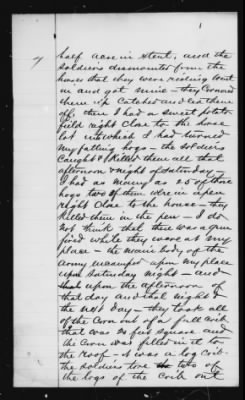 7
half acre in extent, and the
soldiers dismounted from the
horses that they were riding went
in and got mine - they cornered
them up Catched and led them
off; then I had a sweet potato
field right close to the horse
lot into which I had turned
my fatting hogs - the soldiers
Caught & Killed them all that
afternoon & night of Saturday
I had as many as 25 of those
hogs two of them were in a pen
right Close to the house - they
killed them in the pen - I do
not think that there was a gun
fired while they were at my
place - the main body of the
army encamped upon my place
upon Saturday night - and
upon the afternoon of
that day and that night &
the next day - they took all
of the Corn out of a full Crib
that was 20 feet square and
the Corn was filled in it to
the roof - it was a log Crib -
the soldiers tore two of
the logs of the Crib out